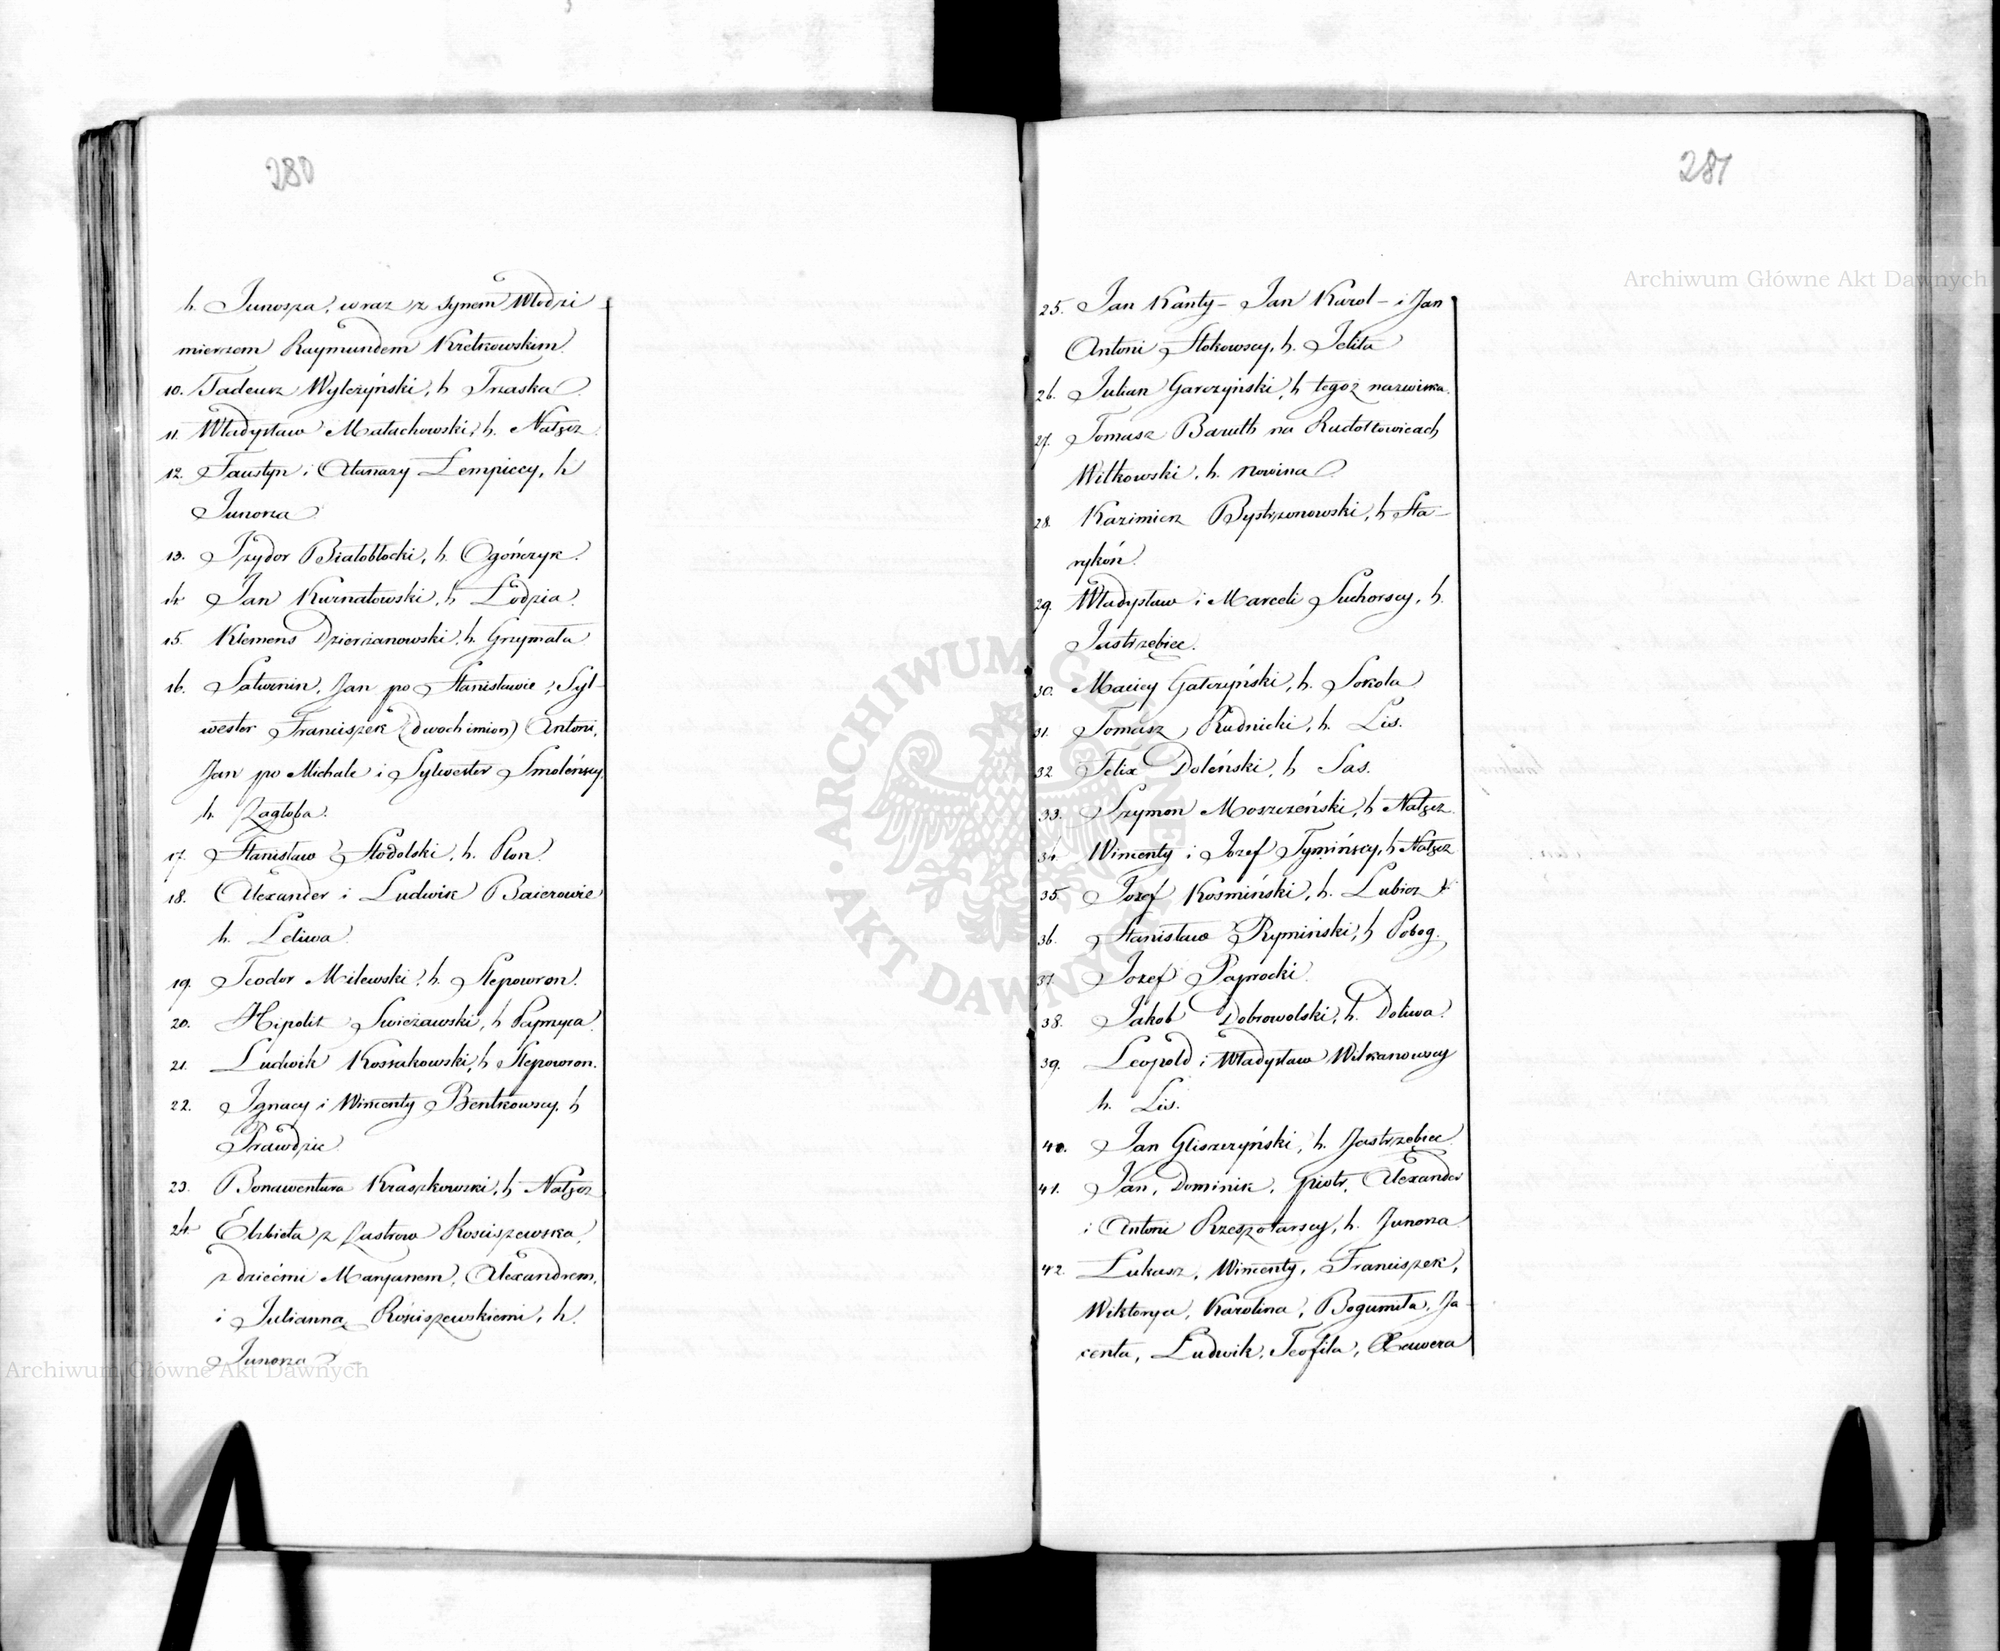 280
h. Junosza, wraz z synem Włodzi
mierzem Raymundem Kretkowskim.
10. Tadeusz Wylczyński, h Trzaska
11. Władysław Małachowski, h. Nałęcz.
12. Faustyn i Atanazy Łempiccy, h
Junosza
13. Izydor Białobłocki, h. Ogończyk.
14 Jan Kurnatowski, h Łodzia.
15. Klemens Dzierżanowski, h. Grzymała
16. Saturnin, Jan po Stanisławie, Syl-
wester Franciszek (dwoch imion) Antoni,
Jan po Michale i Sylwester Smoleńscy,
h. Zagłoba.
17. Stanisław Stodolski, h. Płon.
18. Alexander i Ludwik Baierowie
h. Leliwa.
19. Teodor Milewski, h. Slepowron.
20. Hipolit Swieżawski, h Paprzyca.
21. Ludwik Kossakowski, h Slepowron.
22. Ignacy i Wincenty Bentkowscy, h
Prawdzic
23. Bonawentura Kraszkowski, h Nałęcz
24 Elzbieta z Zastrow Rosciszewska,
z dziećmi Maryanem, Alexandrem,
i Julianną Rościszewskiemi, h.
Junosza
281
25. Jan Kanty – Jan Karol – i Jan
Antoni Stokowscy, h. Jelita
26. Julian Garczyński, h tegoż nazwiska.
27. Tomasz Baruth na Rudołtowicach
Witkowski, h. Nowina
28. Kazimierz Bystrzonowski, h Sta-
rykoń.
29. Władysław i Marceli Suchorscy, h.
Jastrzębiec.
30. Maciey Gałczyński, h. Sokola
31. Tomasz Rudnicki, h. Lis.
32 Felix Doleński, h Sas.
33. Szymon Moszczeński, h Nałęcz.
34. Wincenty i Jozef Tymińscy, h Nałęcz
35. Jozef Kosmiński, h. Lubicz
36. Stanisław Rymiński, h Pobog.
37 Jozef Paprocki.
38. Jakob Dobrowolski, h. Doliwa.
39. Leopold i Władysław Wilkanowscy
h. Lis.
40. Jan Gliszczyński, h. Jastrzębiec
41. Jan, Dominik, Piotr, Alexander
i Antoni Rzeszotarscy, h. Junosza
42. Łukasz, Wincenty, Franciszek,
Wiktorya, Karolina, Bogumiła, Ja-
centa, Ludwik, Teofila, Xawera
Archiwum Główne Akt Dawnych
Archiwum Główne Akt Dawnych